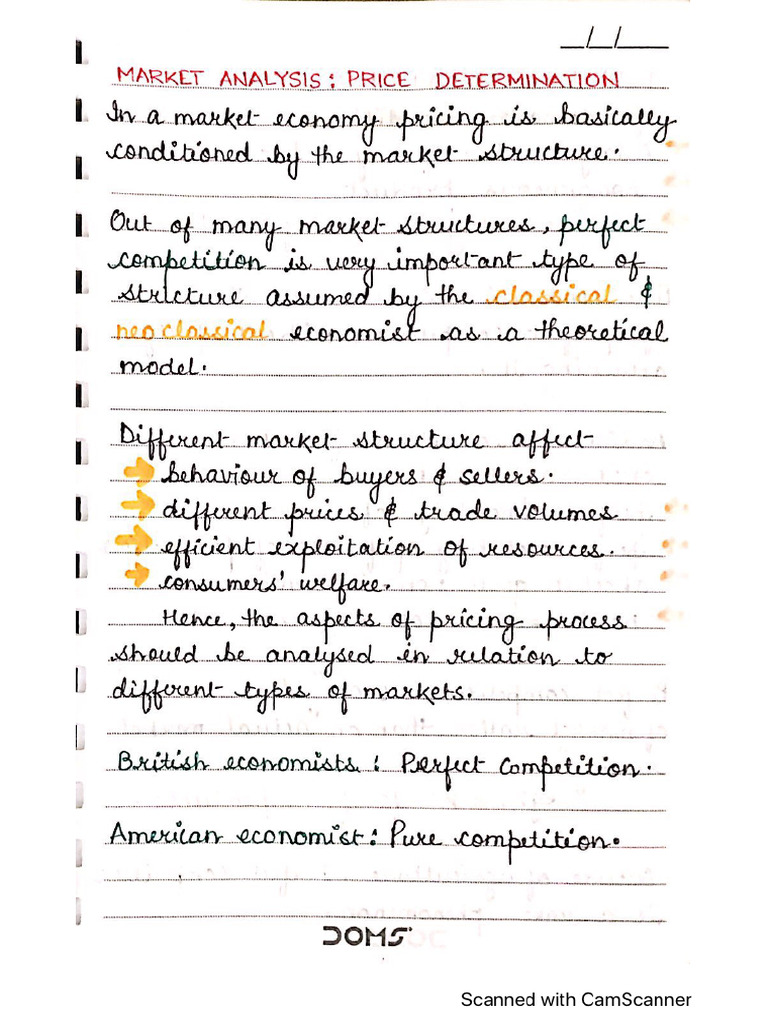 __/__/____
MARKET ANALYSIS : PRICE DETERMINATION
In a market economy pricing is basically
conditioned by the market structure.
Out of many market structures, perfect
competition is very important type of
strcture assumed by the classical &
neoclassical economist as a theoretical
model.
Different market structure affect
→ behaviour of buyers & sellers.
→ different prices & trade volumes
→ efficient exploitation of resources.
→ consumers' welfare.
Hence, the aspects of pricing process
should be analysed in relation to
different types of markets.
British economists : Perfect Competition.
American economist : Pure competition.
DOMS
Scanned with CamScanner